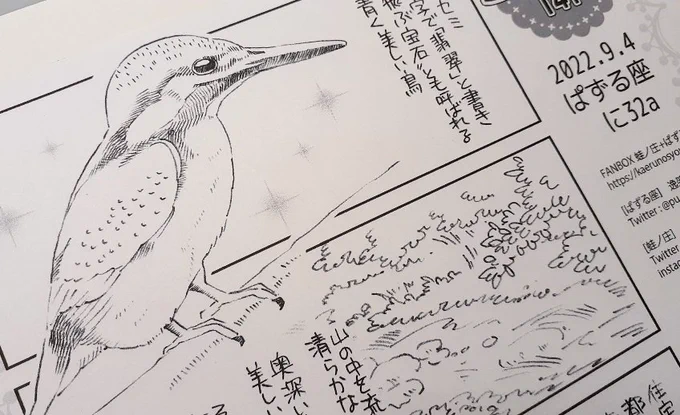 セミ
字で「翡翠」と書き
飛ぶ宝石とも呼ばれる
青く美しい鳥
山の中を流
清らかな
奥深い
美しい
る
住
宅
都
2022.9.4
ぱずる座
に32a
FANBOX 蛙ノ庄+ぱず
https://kaerunosyo
[ぱずる座]
Twitter:@pu
[蛙ノ庄]
Twitter
Instag